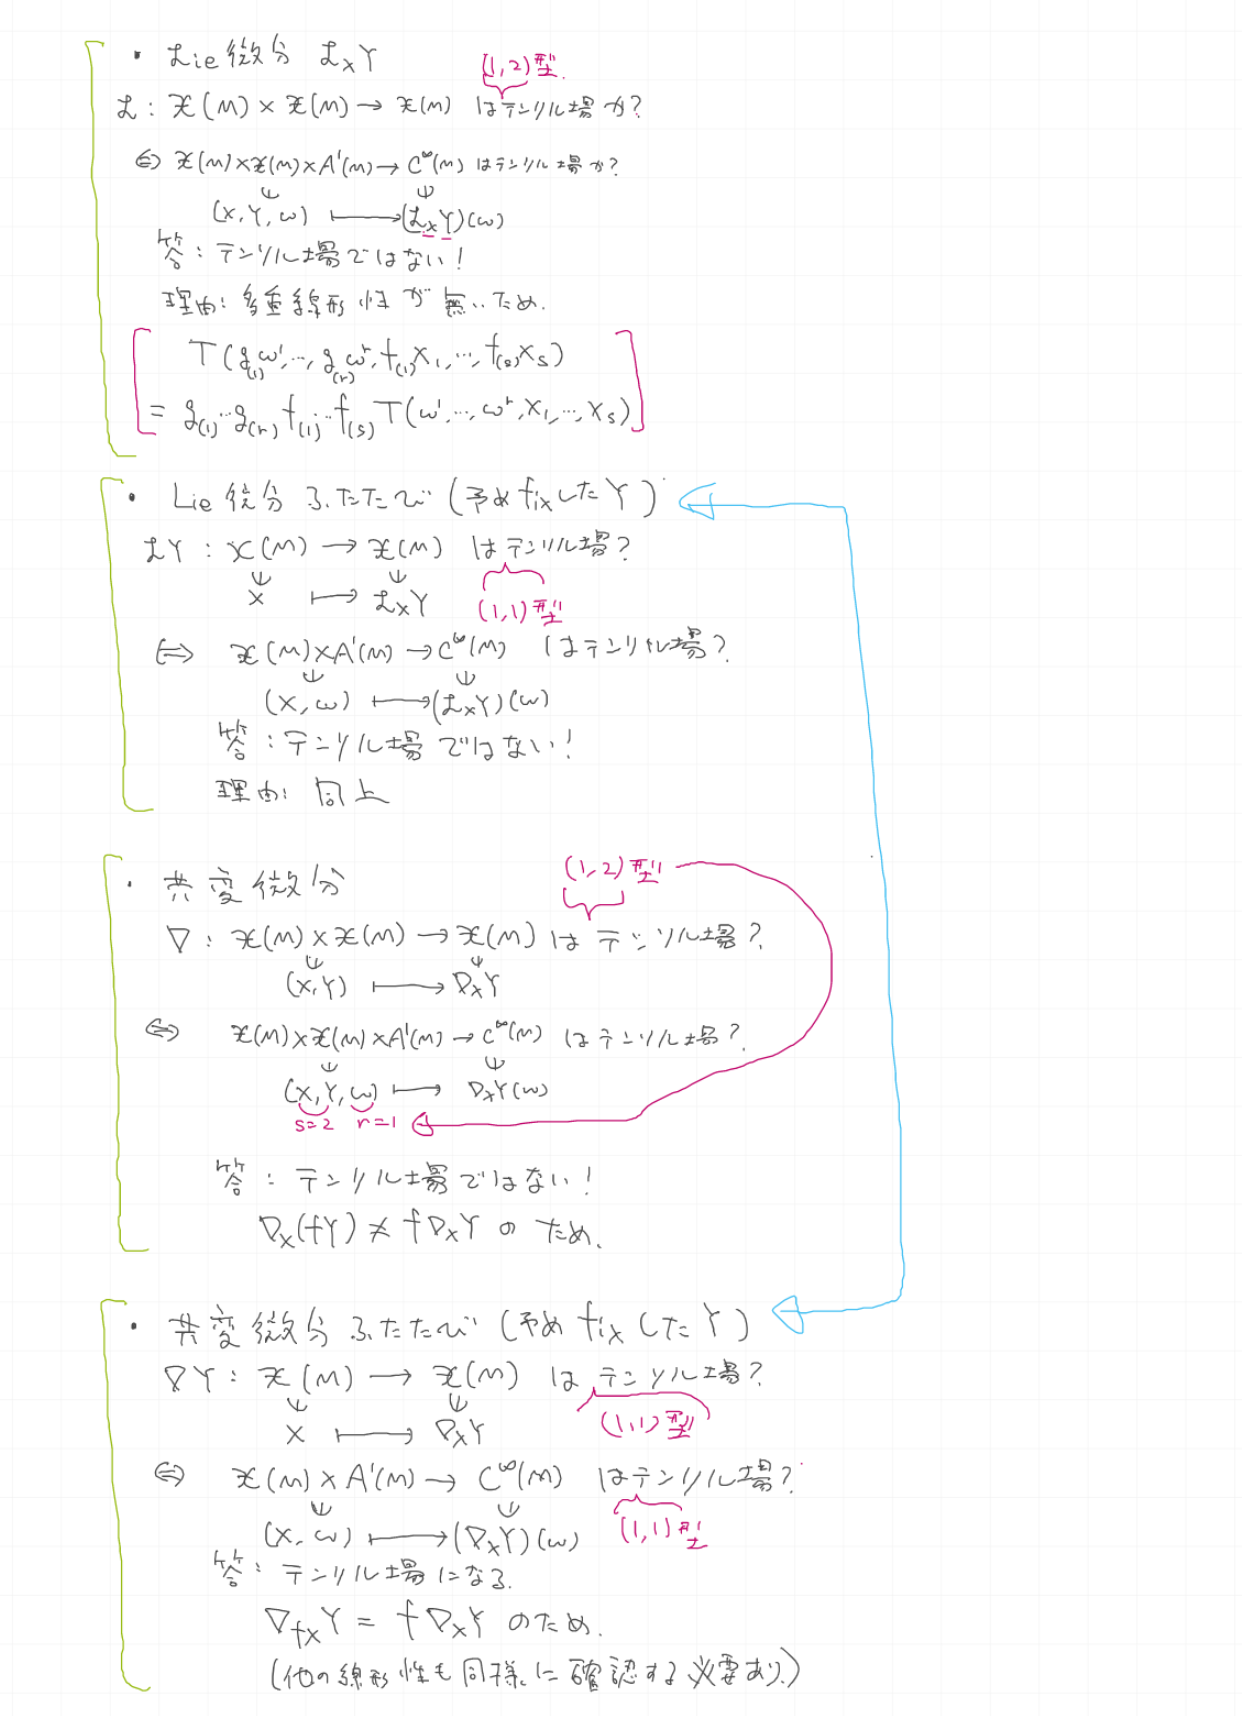 ・Lie微分 £_X Y
(1,2)型
£ : 𝔛(M) × 𝔛(M) → 𝔛(M) はテンソル場か?
⇔ 𝔛(M)×𝔛(M)×A¹(M) → C^∞(M) はテンソル場か?
(X, Y, ω) ⟼ (£_X Y)(ω)
答 : テンソル場ではない!
理由: 多重線形性が無いため.
T(g_(1)ω¹, …, g_(r)ω^r, f_(1)X_1, …, f_(s)X_s)
= g_(1)…g_(r) f_(1)…f_(s) T(ω¹, …, ω^r, X_1, …, X_s)
・Lie微分 ふたたび (予め fix した Y)
£Y : 𝔛(M) → 𝔛(M) はテンソル場?
X ⟼ £_X Y
(1,1)型
⇔ 𝔛(M)×A¹(M) → C^∞(M) はテンソル場?
(X, ω) ⟼ (£_X Y)(ω)
答 : テンソル場ではない!
理由: 同上
・共変微分
(1,2)型
∇ : 𝔛(M) × 𝔛(M) → 𝔛(M) はテンソル場?
(X, Y) ⟼ ∇_X Y
⇔ 𝔛(M)×𝔛(M)×A¹(M) → C^∞(M) はテンソル場?
(X, Y, ω) ⟼ ∇_X Y(ω)
s=2 r=1
答 : テンソル場ではない!
∇_X(fY) ≠ f∇_X Y のため.
・共変微分 ふたたび (予め fix した Y)
∇Y : 𝔛(M) → 𝔛(M) はテンソル場?
X ⟼ ∇_X Y
(1,1)型
⇔ 𝔛(M) × A¹(M) → C^∞(M) はテンソル場?
(X, ω) ⟼ (∇_X Y)(ω)
(1,1)型
答 : テンソル場になる.
∇_{fX} Y = f∇_X Y のため.
(他の線形性も同様に確認する必要あり.)